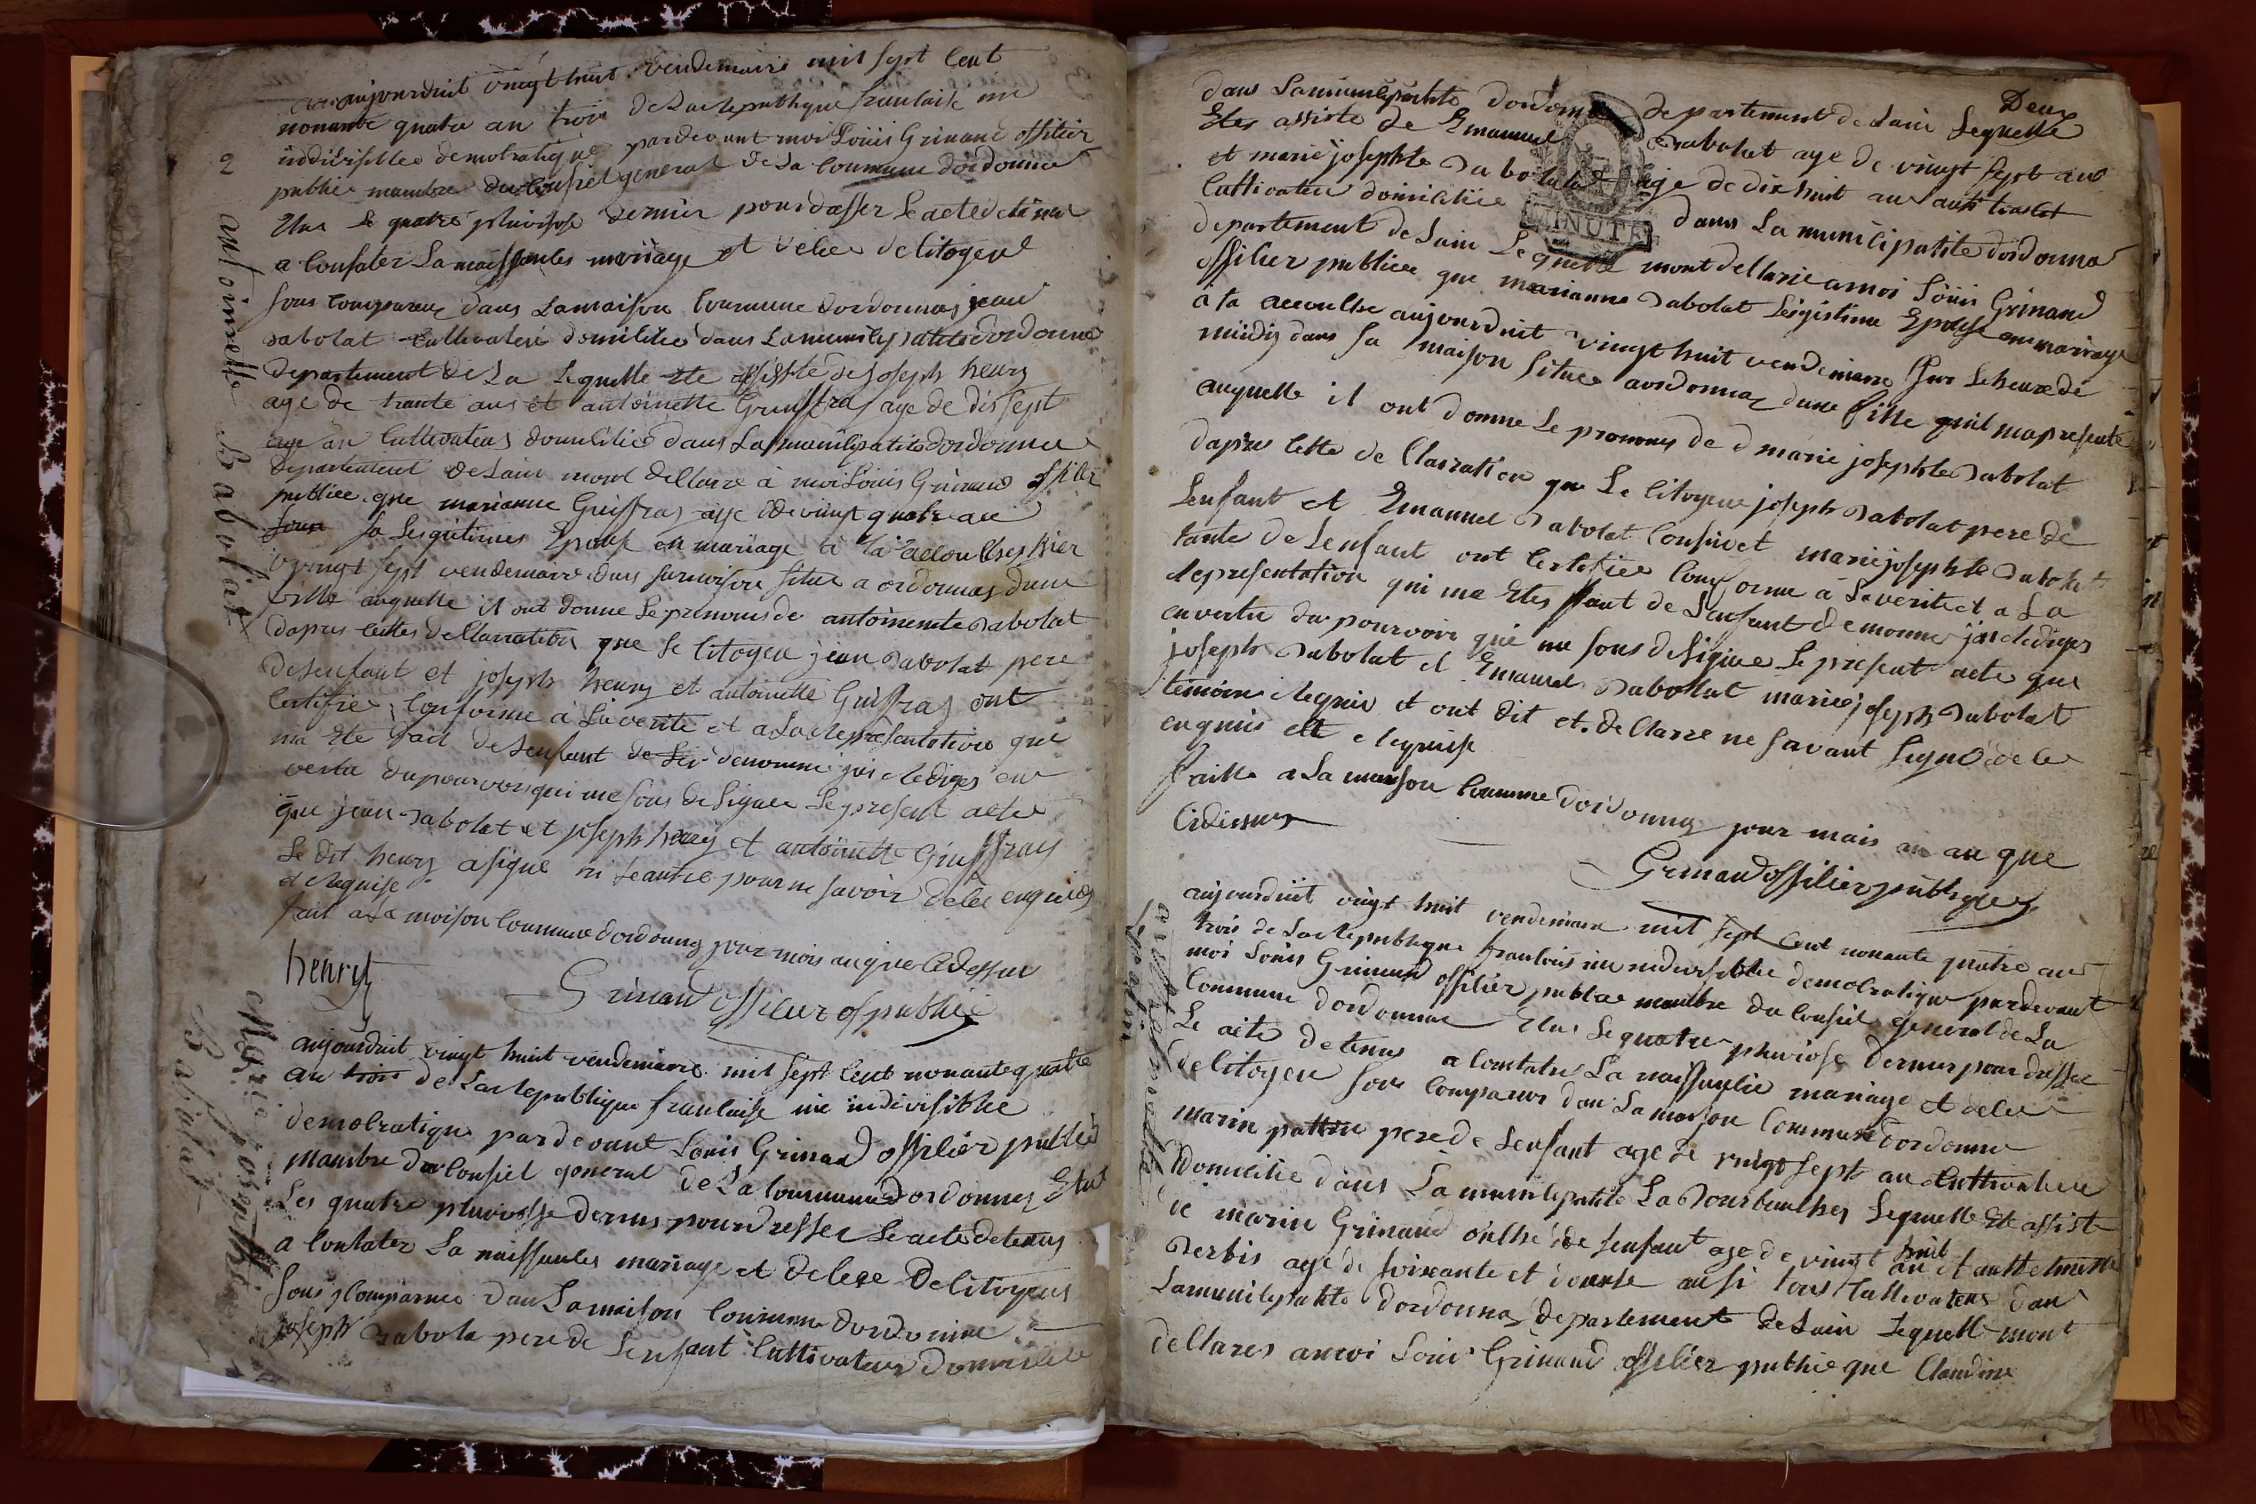 2
antoinette Babolat
aujourduit vingt huit vendemaire mil sept Cent
nonante quatre an trois de La Republique franlaise une
indivisiblee demolratique pardevant moi Louis Grinand offilier
publie mambre du Consiel general de La Commune dordonna
Elus le quatre pluviose dernier pour dresser Le acte detine
a Constater La naissanles mariage et deles de litoyens
sons Comparue dans La maison Commune dordonnas jean
Babolat Cultivateur domilie dans La munilypalite dordonna
departement de La Lequelle Ete assiste de joseph henry
age de trante ans et antoinette Gruffray age de dissept
an Cultivateurs domilice dans La munilipalite dordonna
departement de Lain mont dellare à moi Louis Grinand offilier
publiee que marianne Guiffray age de vingt quatre an
sa Legitimes Epouse en mariage à la accoulhes hier
vingt sept vendemaire dans sa maison situe a ordonnas dune
fille auquelle il ont donne Le prenoms de antoinette Babolat
dapres lettes dellaration que le litoyen jean Babolat pere
de Lenfant et joseph henry et antoinette Guiffray ont
lertifie Conforme à La verité et a La Representation que
ma Ete fait de Lenfant denomme jai Rediges en
vertu du pouvoir qui me sons deligues Le present acte
que jean Babolat et joseph henry et antoinette Guiffray
Le dit henry a signe ni Leautre pour ne savoir deles enquies
et Requise
fait a La maison Commune dordonna jour mois an que Cidessus
henry
Grinand offilier publie
Marie josephte
Babolat
aujourduit vingt huit vendemaire mil sept Cent nonante quatre
an trois de La Republique franlaise une indivisiblee
demolratique pardevant Louis Grinand offilier publié
mambre du Consiel general de La Commune dordonnas Elus
Les quatre pluviose dernis pour dresser Le acte detenus
a Constater La naissanles mariage et deles de litoyens
sons Comparue dans La maison Commune dordonna
joseph Babola pere de Lenfant Cultivateur domilie
Deux
dans La munilipalite dordonna departement de Lain Lequelle
Etes assiste de Emanuel Babolat age de vingt sept ans
et marie josephte Babolat age de dix huit an
Cultivateur domilie dans La munilipalite dordonna
MINUTE
departement de Lain Lequelle mont dellarie a moi Louis Grinand
offilier publiee que marianne Babolat Legistime Epouse en mariage
à la accoulhe aujourduit vingt huit vendemiare sur Leheure de
midis dans sa maison situee a ordonnas dune fille quil ma presenté
auquelle il ont donne Le prenoms de marie josephte Babolat
dapres lette dellaration que Le litoyen joseph Babolat pere de
Lenfant et Emanuel Babolat et marie josephte Babolat
tante de Lenfant ont lertifiee Conforme à La verite et a La
Representation qui ma Etes faut de Lenfant denomme jai Rediges
en vertu du pourvoir qui me sons deligue Le present acte que
joseph Babolat et Emanuel Babolat marie joseph Babolat
temoins Requis et ont dit et dellare ne savant signé de le
enquuis et Requise
faitte a La maison Commune dordonna jour mais an que
Cidessus
Grinand offilier publique
aujourduit vingt huit vendemiare mil sept Cent nonante quatre an
trois de La Republique franlois une indivisiblee demolratique pardevant
moi Louis Grinand offilier publie mambre du Consiel general de La
Commune dordonna Elus Le quatre pluviose dernier pour dresser
Le acte detenus a Constater La naissanlie mariage et deles
de litoyen sons Comparus dan La maison Commune dordonna
marin pere de Lenfant age de vingt sept an Cultivateur
domicilie dans La munilipalite La Lequelle Ete assiste
de marin Grinand onlhe de Lenfant age de vingt huit an et
Derbis age de soixante et douse ausi tous Cultivateur dans
La munilipalite dordonna departement de Lain Lequelle mont
dellares a moi Louis Grinand offilier publie que Claudine